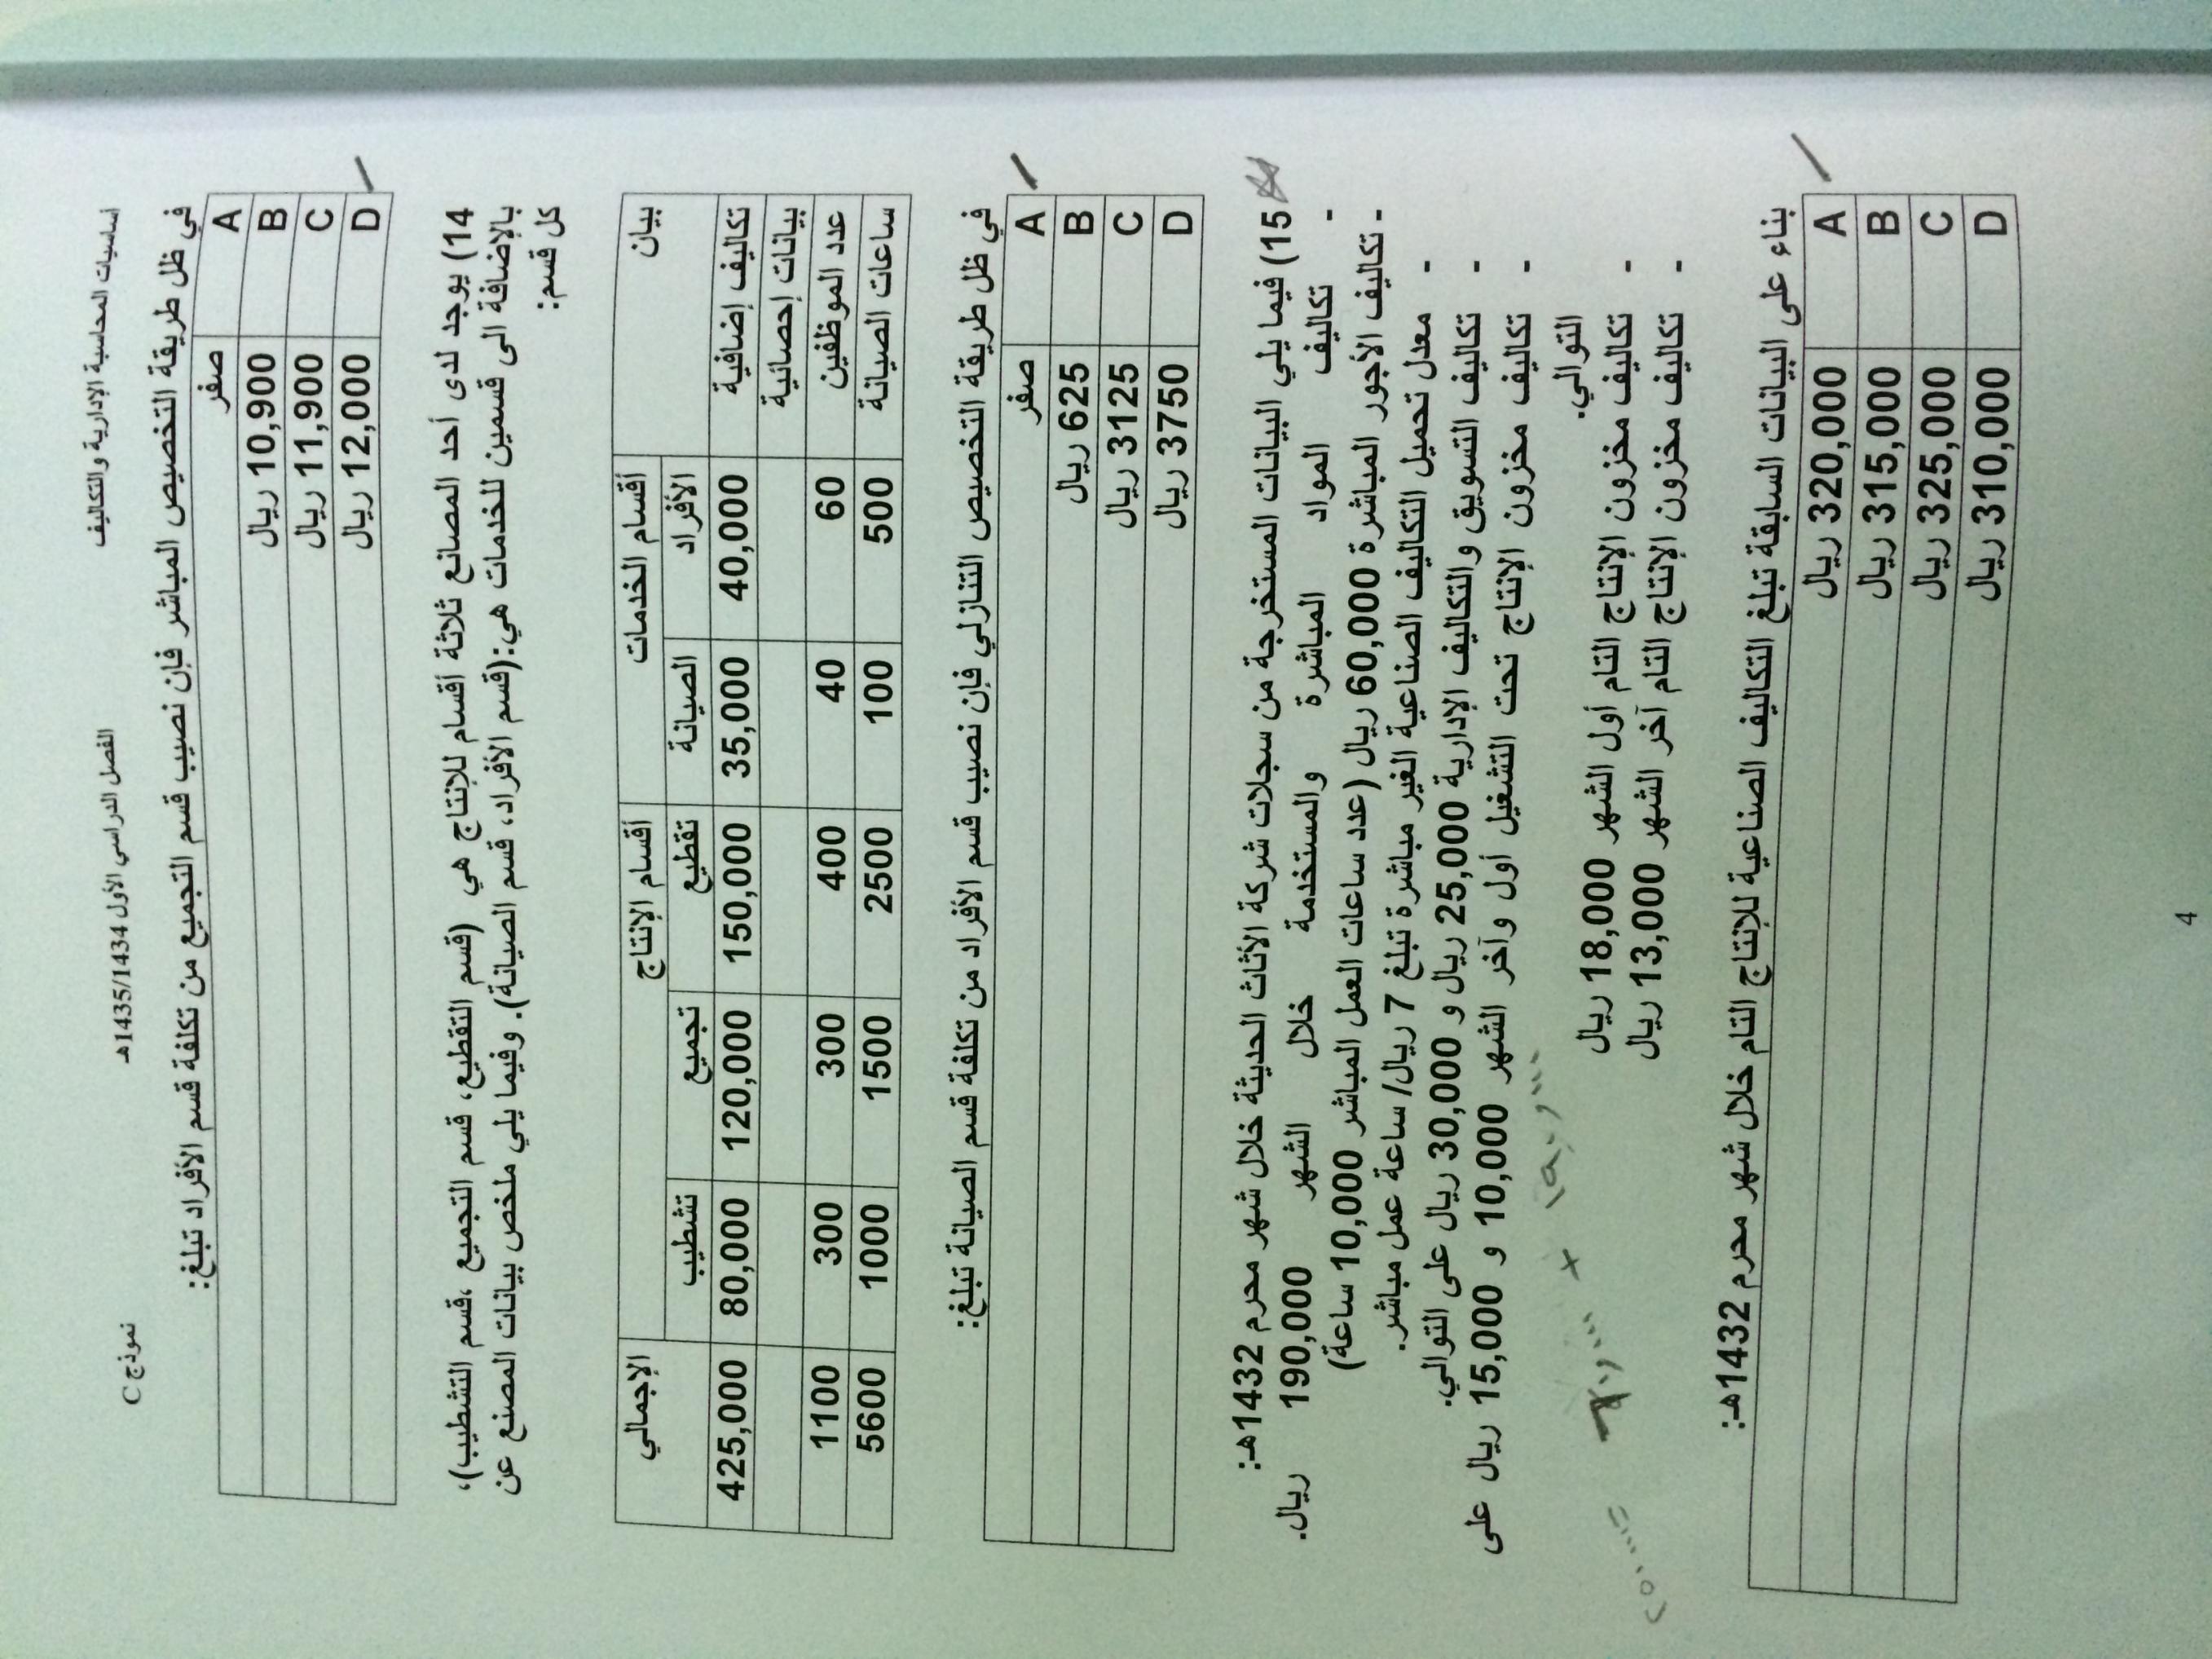 أساسيات المحاسبة الإدارية والتكاليف الفصل الدراسي الأول 1435/1434هـ نموذج C
في ظل طريقة التخصيص المباشر فإن نصيب قسم التجميع من تكلفة قسم الأفراد تبلغ:
A صفر
B 10,900 ريال
C 11,900 ريال
D 12,000 ريال
14) يوجد لدى أحد المصانع ثلاثة أقسام للإنتاج هي (قسم التقطيع، قسم التجميع ،قسم التشطيب)،
بالإضافة الى قسمين للخدمات هي:(قسم الأفراد، قسم الصيانة). وفيما يلي ملخص بيانات المصنع عن
كل قسم:
بيان أقسام الخدمات أقسام الإنتاج الإجمالي
الأفراد الصيانة تقطيع تجميع تشطيب
تكاليف إضافية 40,000 35,000 150,000 120,000 80,000 425,000
بيانات إحصائية
عدد الموظفين 60 40 400 300 300 1100
ساعات الصيانة 500 100 2500 1500 1000 5600
في ظل طريقة التخصيص التنازلي فإن نصيب قسم الأفراد من تكلفة قسم الصيانة تبلغ:
A صفر
B 625 ريال
C 3125 ريال
D 3750 ريال
15) فيما يلي البيانات المستخرجة من سجلات شركة الأثاث الحديثة خلال شهر محرم 1432هـ:
- تكاليف المواد المباشرة والمستخدمة خلال الشهر 190,000 ريال.
- تكاليف الأجور المباشرة 60,000 ريال (عدد ساعات العمل المباشر 10,000 ساعة)
- معدل تحميل التكاليف الصناعية الغير مباشرة تبلغ 7 ريال/ ساعة عمل مباشر.
- تكاليف التسويق والتكاليف الإدارية 25,000 ريال و 30,000 ريال على التوالي.
- تكاليف مخزون الإنتاج تحت التشغيل أول وآخر الشهر 10,000 و 15,000 ريال على
التوالي.
- تكاليف مخزون الإنتاج التام أول الشهر 18,000 ريال
- تكاليف مخزون الإنتاج التام آخر الشهر 13,000 ريال
بناء على البيانات السابقة تبلغ التكاليف الصناعية للإنتاج التام خلال شهر محرم 1432هـ:
A 320,000 ريال
B 315,000 ريال
C 325,000 ريال
D 310,000 ريال
4